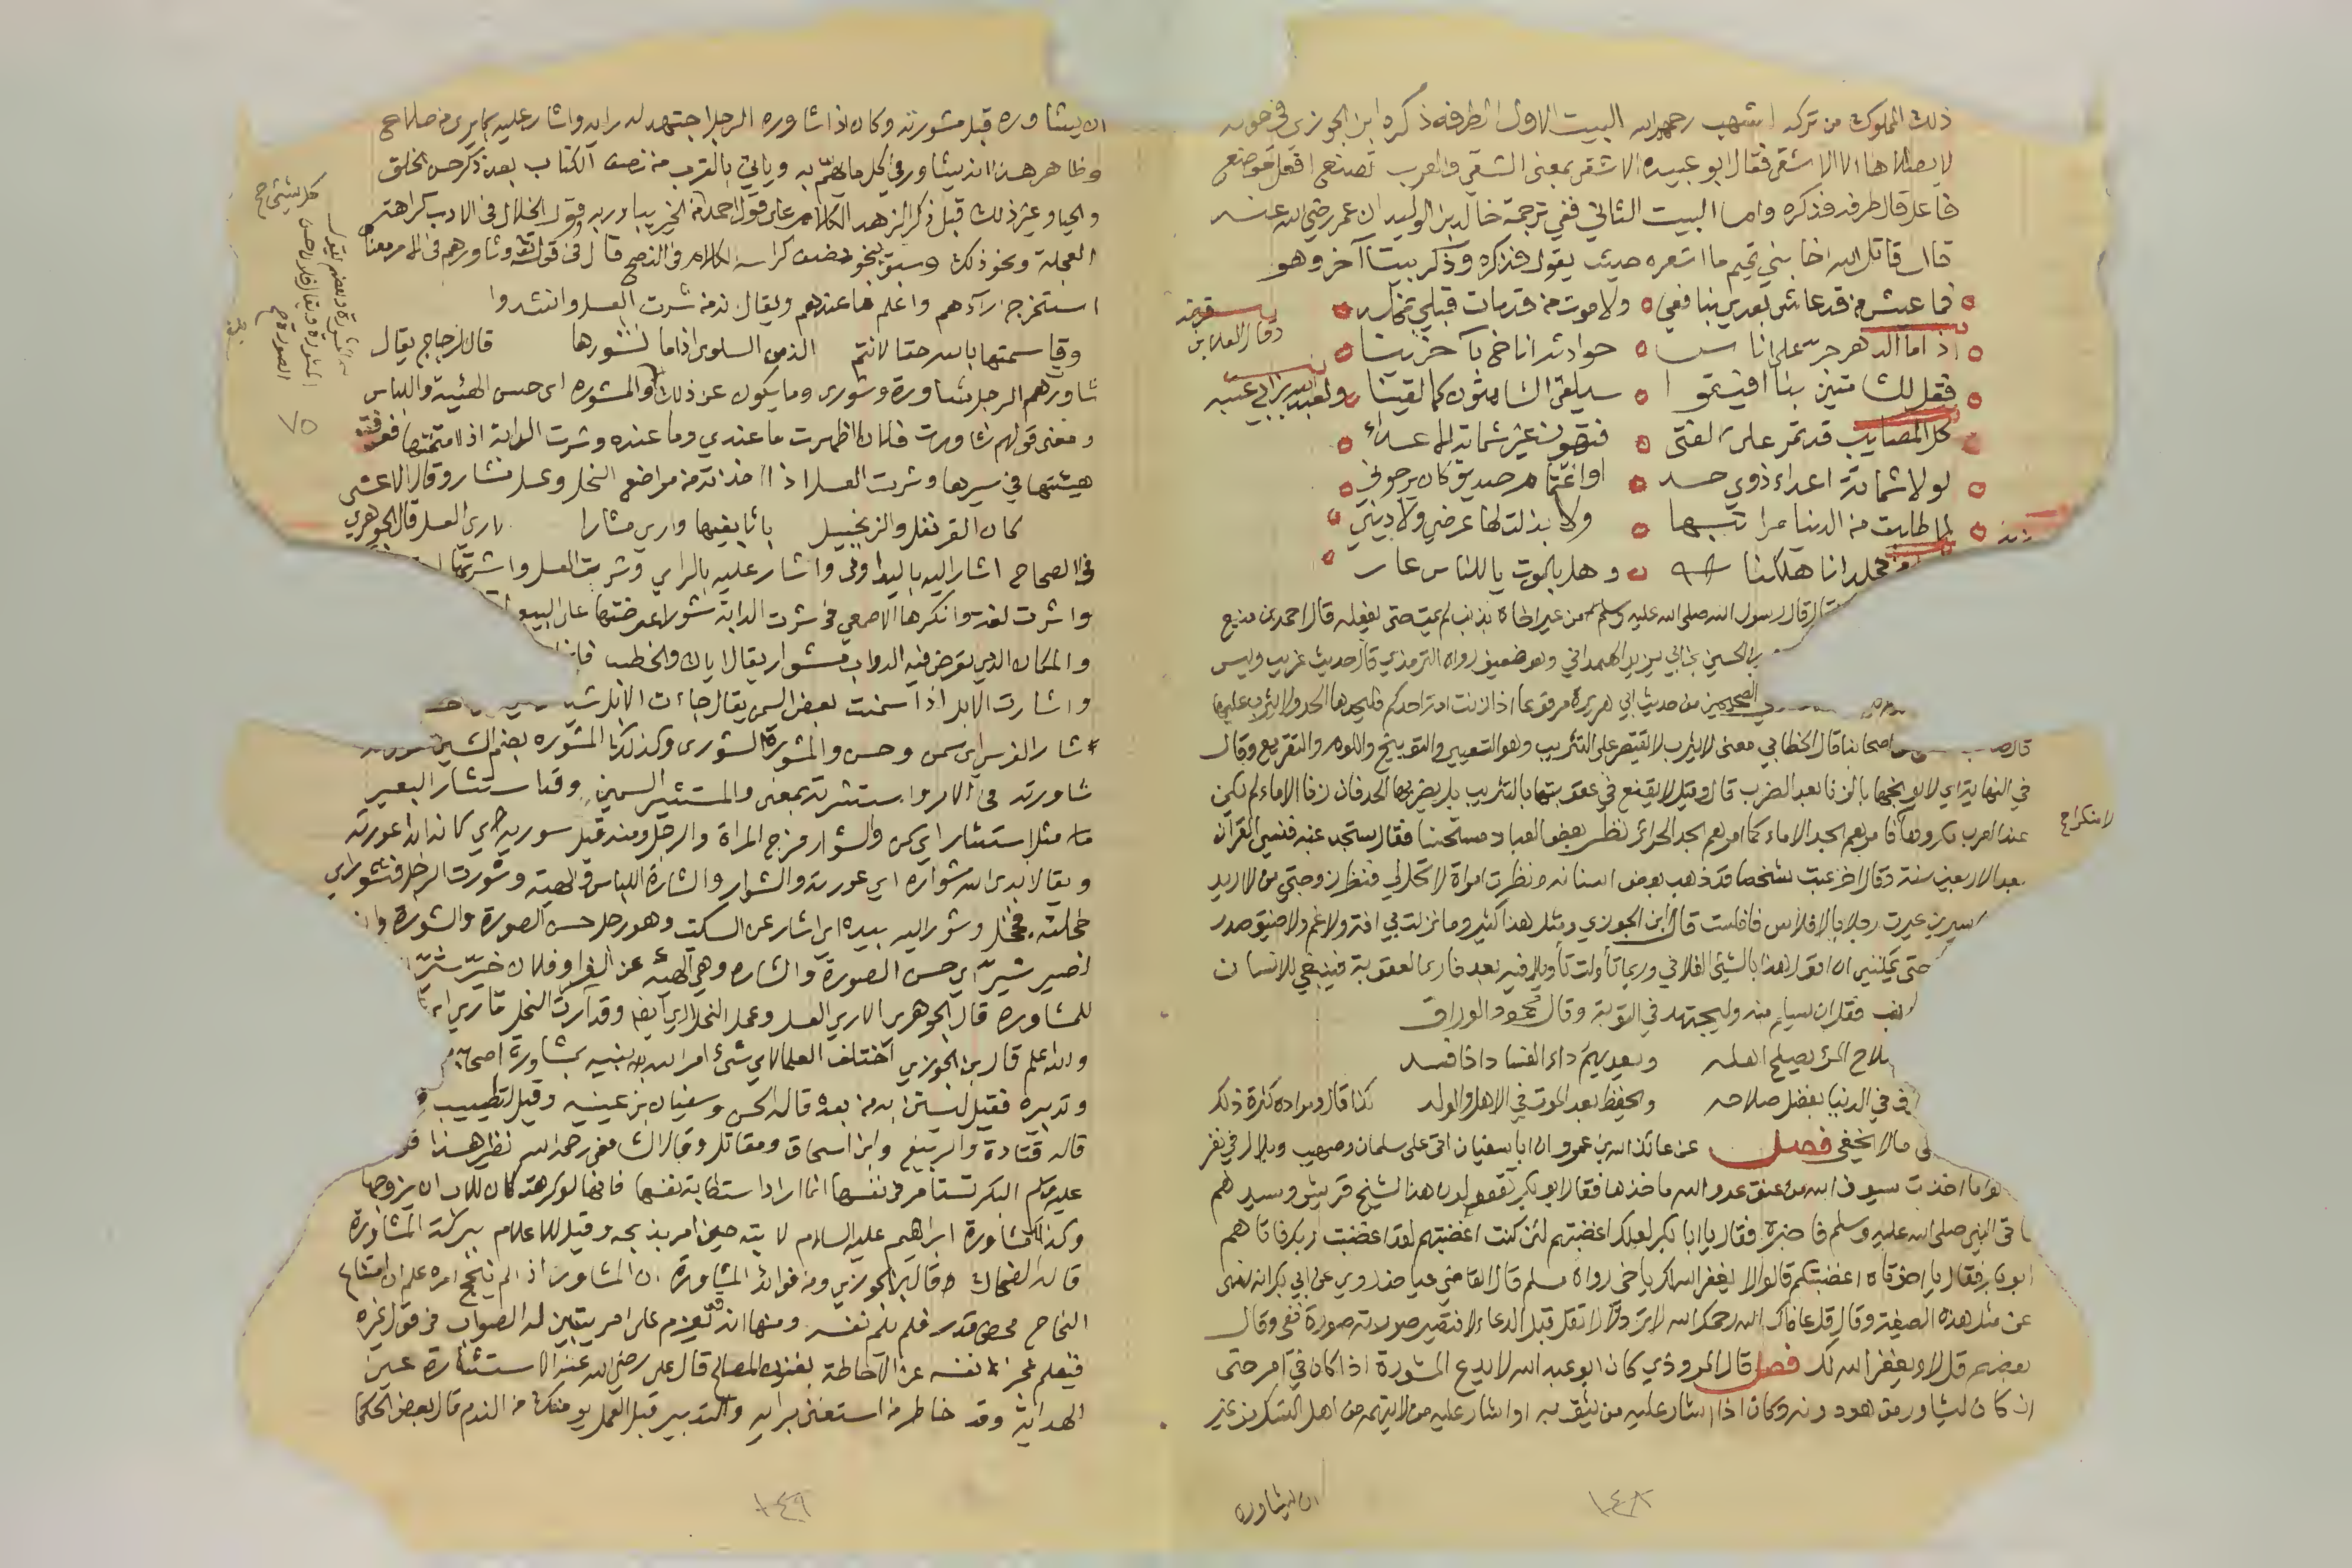 ذلك المملوك من تركه اشهب رحمه الله البيت الاول لطرفة ذكره ابن الجوزي في قوله
لا يصلاها الا الاشقى فقال ابو عبيده الاشقى بمعنى الشقي والعرب تضع افعل موضع
فاعل قال طرفه فذكره واما البيت الثاني ففي ترجمة خالد بن الوليد ان عمر رضي الله عنه
قال قاتل الله اخا بني تميم ما اشعره حيث يقول فذكره وذكر بيتا آخر وهو
فما عيش من قد عاش بعدي بنافعي ولا موت من قد مات قبلي بمخلد
وقال العلا بن قرضة
اذا ما الدهر جر على اناس حوادثه اناخ بآخرينا
فقل للشامتين بنا افيقوا سيلقى الشامتون كما لقينا ولعبد الله بن ابي عيينه
كل المصايب قد تمر على الفتى فتهون غير شماتة الاعداء
لولا شماتة اعداء ذوي حسد او اغتمام صديق كان يرجوني
لما طلبت من الدنيا مراتبها ولا بذلت لها عرضي ولا ديني
هلكنا وهل بالموت يا للناس عار
قال قال رسول الله صلى الله عليه وسلم من عير اخاه بذنب لم يمت حتى يفعله قال احمد بن منيع
بن الحسن بن ابي يزيد الهمداني وهو ضعيف رواه الترمذي قال حديث غريب وليس
الصحيحين من حديث ابي هريرة مرفوعا اذا زنت امة احدكم فليجلدها الحد ولا يثرب عليها
اصحابنا قال الخطابي معنى لا يثرب لا يقتصر على التثريب وهو التعيير والتوبيخ واللوم والتقريع وقال
في النهاية اي لا يوبخها بالزنا بعد الضرب قال وقيل لا يقنع في عقوبتها بالتثريب بل يضربها الحد فان زنا الاماء لم يكن
عند العرب مكروها فامرهم بحد الاماء كما امرهم بحد الحرائر نظر بعض العباد مستحسنا فقال ستجد غبه فنسي القرآن
بعد الاربعين سنة وقال اخر عبت شخصا قد ذهب بعض اسنانه ونظرت امراة لا تحل لي فنظر زوجتي من لا اريد
سيرين عيرت رجلا بالافلاس فافلست قال ابن الجوزي ومثل هذا كثير وما نزلت بي افة ولا غم ولا ضيق صدر
حتى يمكنني ان اقول هذا بالشئ الفلاني وربما تأولت تأويلا فيه بعد فارى العقوبة فينبغي للانسان
فقل ان يسلم منه وليجتهد في التوبة وقال محمود الوراق
صلاح المرء يصلح اهله ويعديهم داء الفساد اذا فسد
في الدنيا بفضل صلاحه ويحفظ بعد الموت في الاهل والولد كذا قال ومراده كثرة ذلك
ما لا يخفى فصل عن عائذ بن عمرو ان ابا سفيان اتى على سلمان وصهيب وبلال في نفر
ما اخذت سيوف الله من عنق عدو الله ماخذها فقال ابو بكر تقولون هذا لشيخ قريش وسيدهم
فاتى النبي صلى الله عليه وسلم فاخبره فقال يا ابا بكر لعلك اغضبتهم لئن كنت اغضبتهم لقد اغضبت ربك فاتاهم
ابو بكر فقال يا اخوتاه اغضبتكم قالوا لا يغفر الله لك يا اخي رواه مسلم قال القاضي عياض روي عن ابي بكر انه نهى
عن مثل هذه الصيغة وقال قل عافاك الله رحمك الله لا تزد ولا تقل قبل الدعاء لا فتصير صورته صورة نفي وقال
بعضهم قل لا ويغفر الله لك فصل قال المروذي كان ابو عبد الله لا يدع المشورة اذا كان في امر حتى
ان كان ليشاور من هو دونه وكان اذا اشار عليه من يثق به او اشار عليه من لا يتهمه من اهل النسك من غير
ان يشاوره
١٤٨
ان يشاوره قبل مشورته وكان اذا شاوره الرجل اجتهد له رايه واشار عليه بما يرى من صلاح
وظاهر هذا انه يشاور في كل ما يهم به وياتي بالقرب من نصف الكتاب بعد ذكر حسن الخلق
والحيا وغير ذلك قبل ذكر الزهد الكلام على قول احمد كل شيء من الخير يبادر به وقول الخلال في الادب كراهة
العجلة ونحو ذلك وسبق بنحو نصف كراسه الكلام في النصح قال في قوله تعالى وشاورهم في الامر معناه
استخرج آراءهم واعلم ما عندهم ويقال انه من شرت العسل وانشدوا
وقاسمتها بالله حقا لانتم الذ من السلوى اذا ما نشورها قال الزجاج يقال
شاورهم الرجل مشاورة وشورى وما يكون عن ذلك والمشوره اي حسن الهيئة واللباس
ومعنى قولهم شاورت فلانا اظهرت ما عندي وما عنده وشرت الدابة اذا امتحنتها فعرفت
هيئتها في سيرها وشرت العسل اذا اخذته من مواضع النحل وعسل مشار وقال الاعشى
كان القرنفل والزنجبيل باتا بفيها واريا مشارا الاري العسل قال الجوهري
في الصحاح اشار اليه باليد اومى واشار عليه بالراي وشرت العسل واشرتها
واشرت لغة وانكرها الاصمعي وشرت الدابة شورا عرضتها على البيع
والمكان الذي يعرض فيه الدواب مشوار يقال اياك والخطب
واشارت الابل اذا سمنت بعض السمن يقال جاءت الابل
شار الفرس اي سمن وحسن والمشورة الشورى وكذلك المشوره بضم الشين
شاورته في الامر واستشرته بمعنى والمستشير السمين وقد استشار البعير
مثل استشار اي سمن والشوار فرج المراة والرجل ومنه قيل شور به اي كانه ابدا عورته
ويقال ابدى الله شواره اي عورته والشوار والشارة اللباس والهيئة وشورت الرجل فتشور اي
خجلته فخجل وشور اليه بيده اي اشار عن السكيت وهو رجل حسن الصورة والشورة
لخير شير اي حسن الصورة والشاره وهي الهيئه عن الفرا وفلان خير شير
للمشاورة قال الجوهري الاري العسل وعمل النحل اري ايضا وقد ارت النحل تاري اريا
والله اعلم قال ابن الجوزي اختلف العلما لاي شئ امر الله نبيه بمشاورة اصحابه
وتدبيره فقيل ليستن به من بعده قاله الحسن وسفيان بن عيينه وقيل لتطييب
قاله قتادة والربيع وابن اسحاق ومقاتل وقال الشافعي رحمه الله نظير هذا
عليه السلام البكر تستامر في نفسها انما اراد استطابة نفسها فانها لو كرهت كان للاب ان يزوجها
وكذلك مشاورة ابراهيم عليه السلام لابنه حين امر بذبحه وقيل للاعلام ببركة المشاورة
قاله الضحاك وقال ابن الجوزي ومن فوائد المشاورة ان المشاور اذا لم ينجح امره علم ان امتناع
النجاح محض قدر فلم يلم نفسه ومنها انه قد يعزم على امر يتبين له الصواب في قول غيره
فيعلم عجز نفسه عن الاحاطة بفنون المصالح قال علي رضي الله عنه الاستشارة عين
الهداية وقد خاطر من استغنى برايه والتدبير قبل العمل يؤمنك من الندم قال بعض الحكما
١٤٩
٧٥